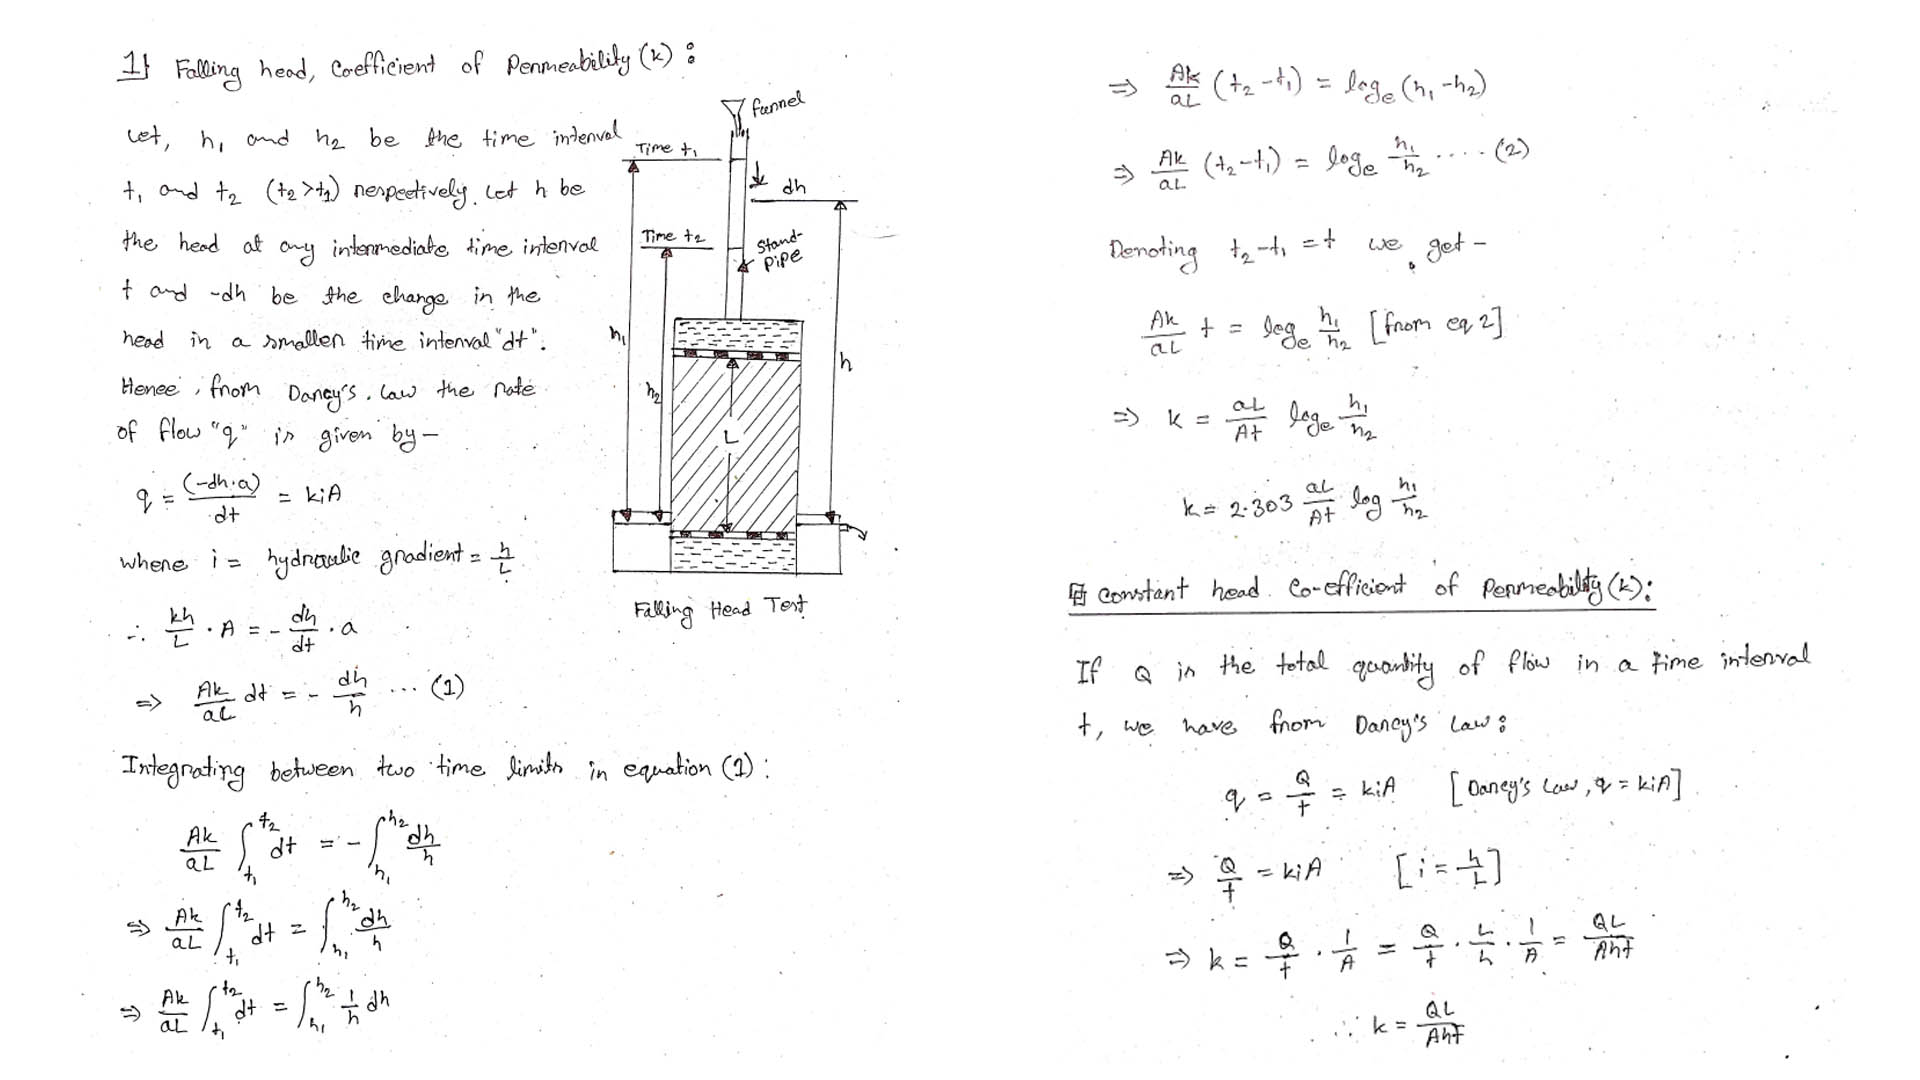 1} Falling head, Coefficient of Permeability (k) :
Let, h₁ and h₂ be the time interval
t₁ and t₂ (t₂>t₁) respectively. Let h be
the head at any intermediate time interval
t and -dh be the change in the
head in a smaller time interval "dt".
Hence, from Darcy's. Law the rate
of flow "q" is given by —
q = (-dh·a)/dt = kiA
where i = hydraulic gradient = h/L
∴ kh/L · A = - dh/dt · a
⇒ Ak/aL dt = - dh/h ... (1)
Integrating between two time limits in equation (1) :
Ak/aL ∫_t₁^t₂ dt = - ∫_h₁^h₂ dh/h
⇒ Ak/aL ∫_t₁^t₂ dt = ∫_h₁^h₂ dh/h
⇒ Ak/aL ∫_t₁^t₂ dt = ∫_h₁^h₂ 1/h dh
funnel
Time t₁
dh
Time t₂
Stand-
pipe
h₁
h₂
h
L
Falling Head Test
⇒ Ak/aL (t₂-t₁) = logₑ (h₁-h₂)
⇒ Ak/aL (t₂-t₁) = logₑ h₁/h₂ .... (2)
Denoting t₂-t₁ = t we get —
Ak/aL t = logₑ h₁/h₂ [from eq 2]
⇒ k = aL/At logₑ h₁/h₂
k = 2.303 aL/At log h₁/h₂
Constant head Co-efficient of Permeability (k):
If Q is the total quantity of flow in a time interval
t, we have from Darcy's Law:
q = Q/t = kiA [Darcy's Law, q = kiA]
⇒ Q/t = kiA [i = h/L]
⇒ k = Q/t · 1/A = Q/t · L/h · 1/A = QL/Aht
∴ k = QL/Aht